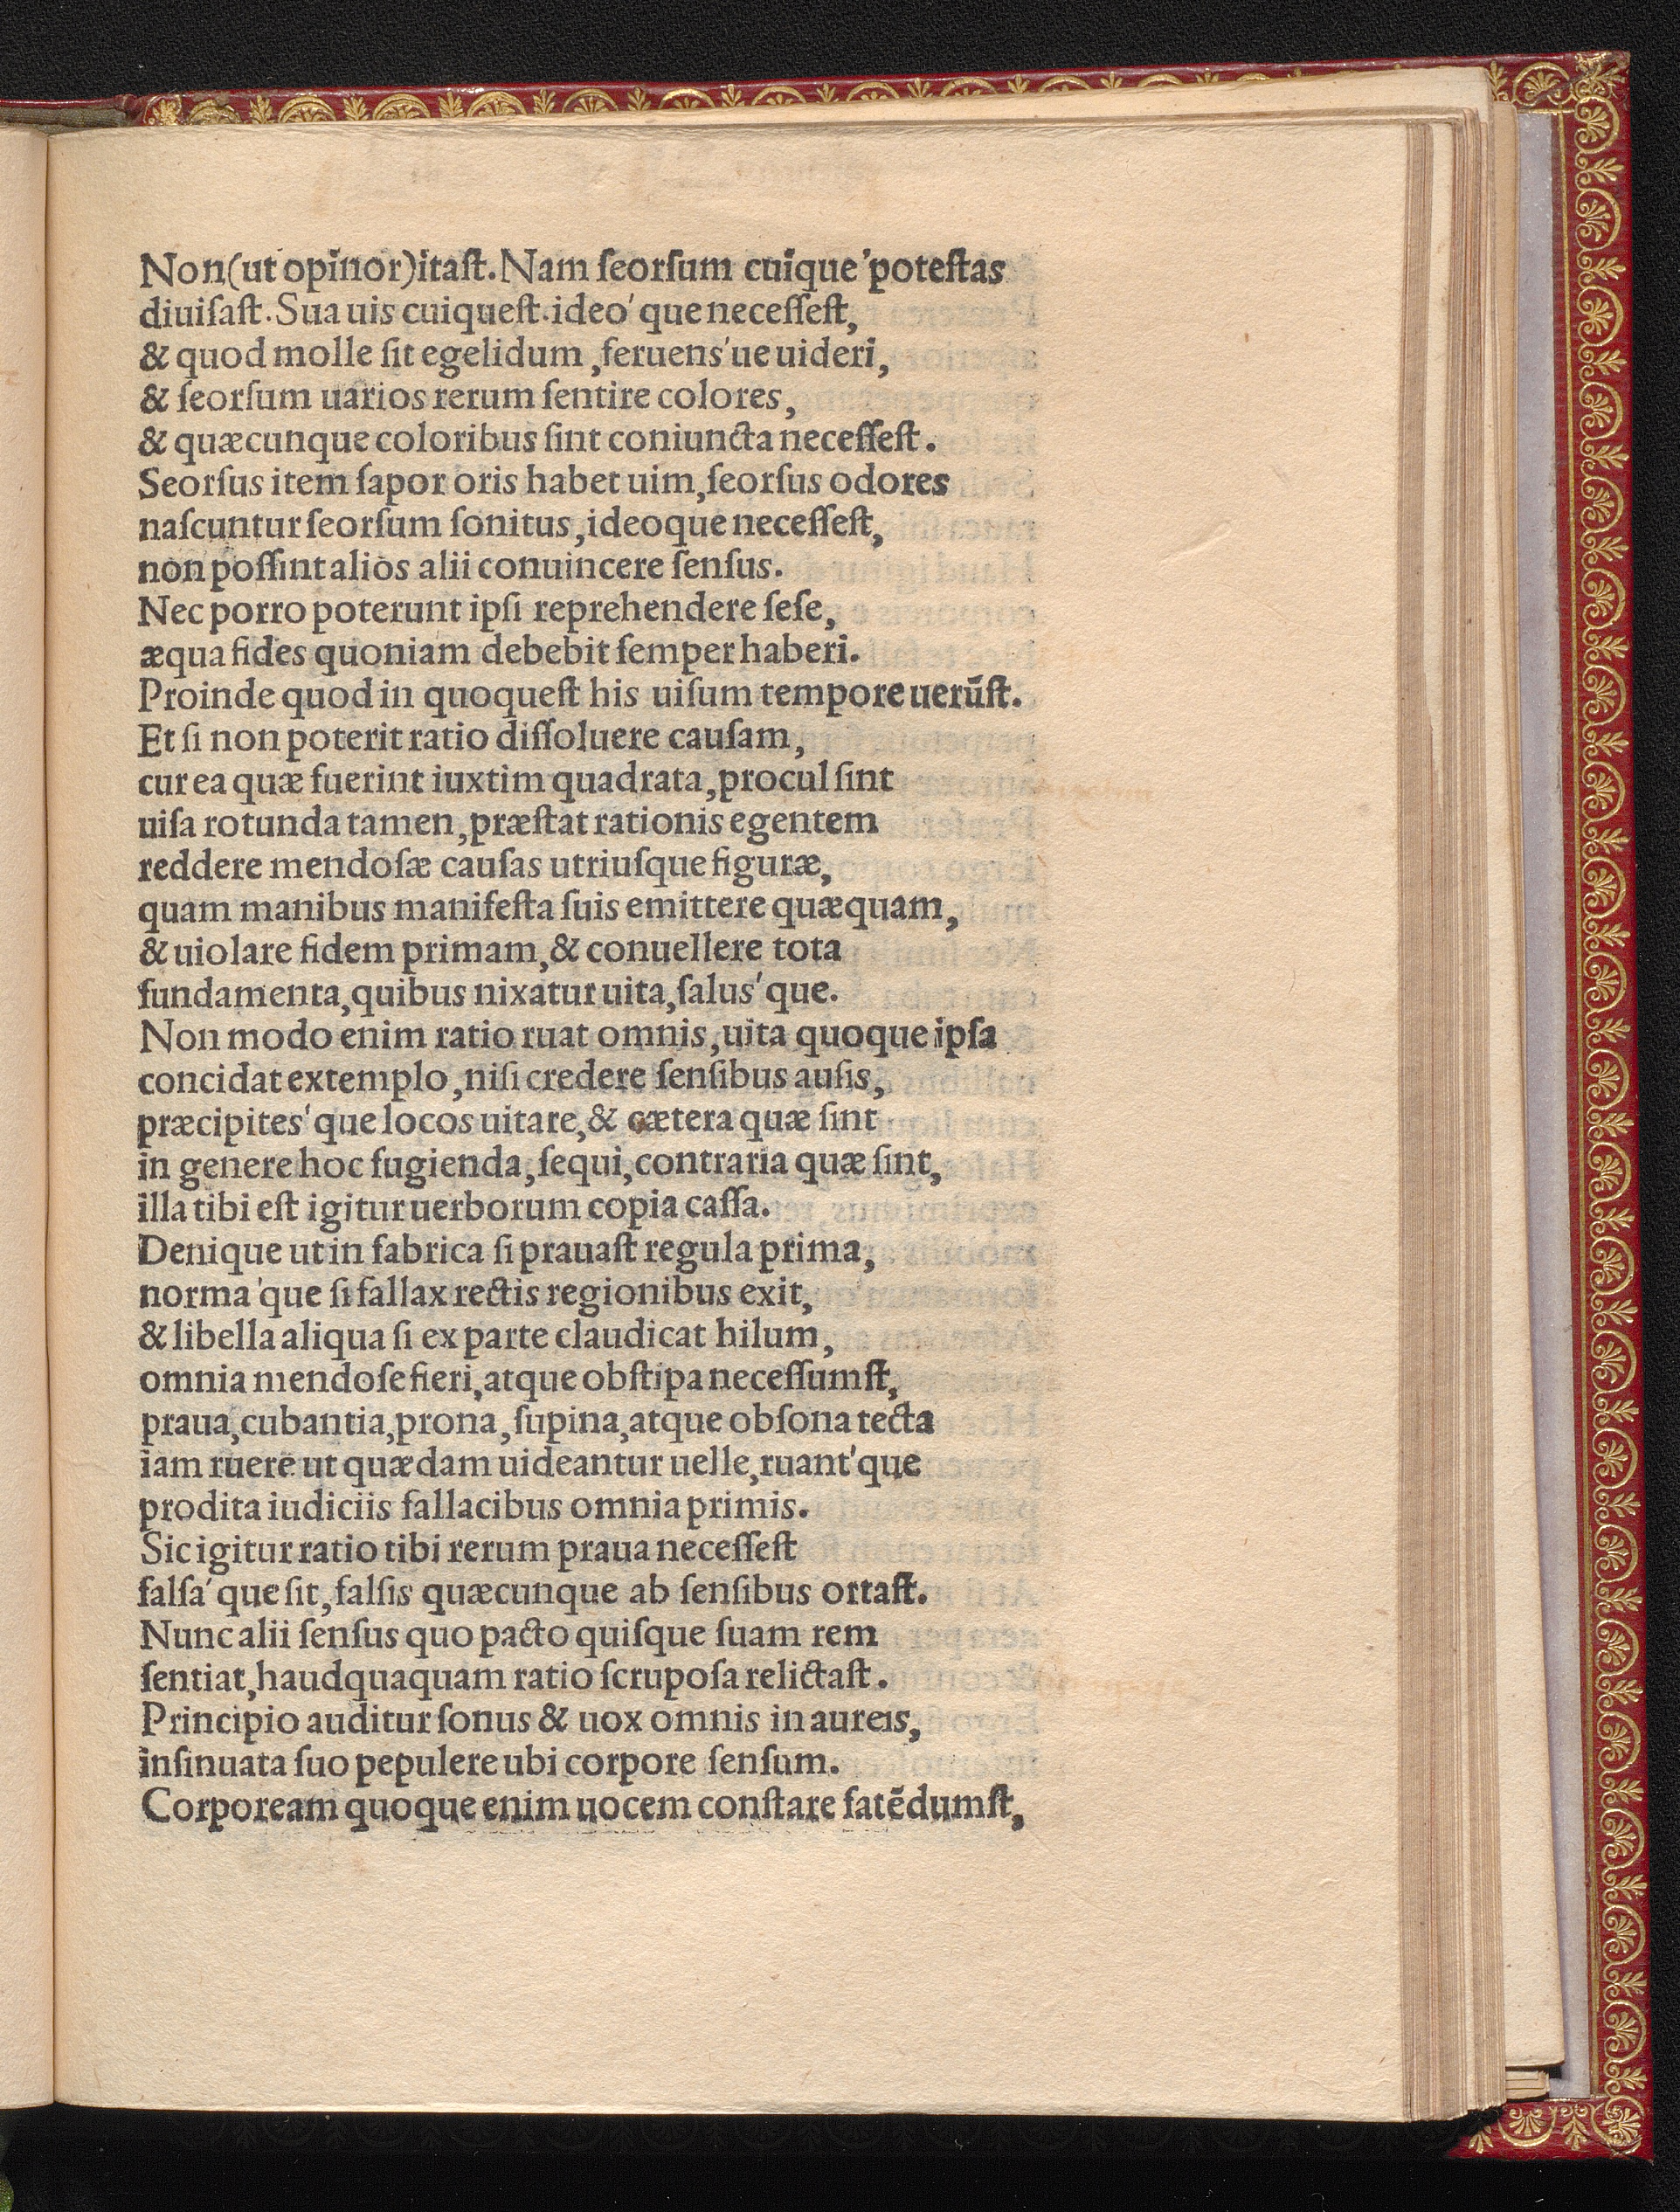 Non(ut opinor)itaſt. Nam ſeorſum cuique'poteſtas
diuiſaſt. Sua uis cuiqueſt. ideo'que neceſſeſt,
& quod molle ſit egelidum, feruens'ue uideri,
& ſeorſum uarios rerum ſentire colores,
& quæcunque coloribus ſint coniuncta neceſſeſt.
Seorſus item ſapor oris habet uim, ſeorſus odores
naſcuntur ſeorſum ſonitus, ideoque neceſſeſt,
non poſſint alios alii conuincere ſenſus.
Nec porro poterunt ipſi reprehendere ſeſe,
æqua fides quoniam debebit ſemper haberi.
Proinde quod in quoqueſt his uiſum tempore uerūſt.
Et ſi non poterit ratio diſſoluere cauſam,
cur ea quæ fuerint iuxtim quadrata, procul ſint
uiſa rotunda tamen, præſtat rationis egentem
reddere mendoſæ cauſas utriuſque figuræ,
quam manibus manifeſta ſuis emittere quæquam,
& uiolare fidem primam, & conuellere tota
fundamenta, quibus nixatur uita, ſalus'que.
Non modo enim ratio ruat omnis, uita quoque ipſa
concidat extemplo, niſi credere ſenſibus auſis,
præcipites'que locos uitare, & cætera quæ ſint
in genere hoc fugienda, ſequi, contraria quæ ſint,
illa tibi eſt igitur uerborum copia caſſa.
Denique ut in fabrica ſi prauaſt regula prima,
norma'que ſi fallax rectis regionibus exit,
& libella aliqua ſi ex parte claudicat hilum,
omnia mendoſe fieri, atque obſtipa neceſſumſt,
praua, cubantia, prona, ſupina, atque obſona tecta
iam ruere ut quædam uideantur uelle, ruant'que
prodita iudiciis fallacibus omnia primis.
Sic igitur ratio tibi rerum praua neceſſeſt
falſa'que ſit, falſis quæcunque ab ſenſibus ortaſt.
Nunc alii ſenſus quo pacto quiſque ſuam rem
ſentiat, haudquaquam ratio ſcrupoſa relictaſt.
Principio auditur ſonus & uox omnis in aureis,
inſinuata ſuo pepulere ubi corpore ſenſum.
Corpoream quoque enim uocem conſtare fatēdumſt,